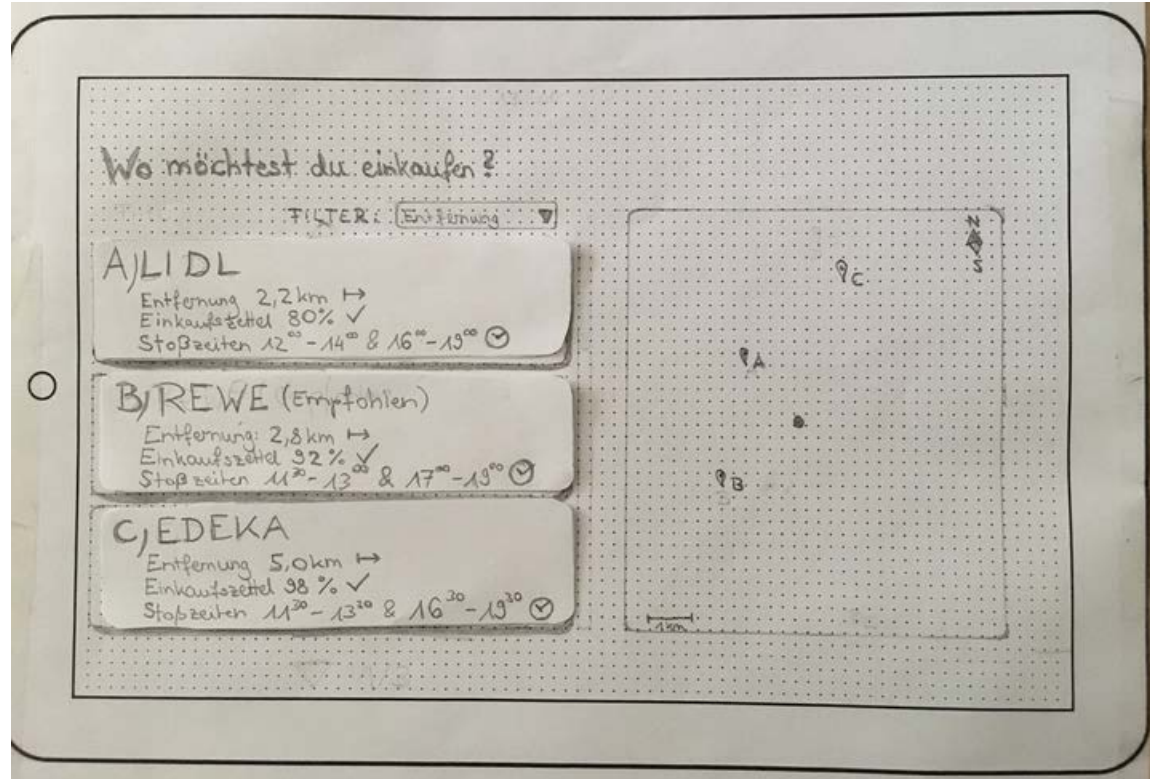 Wo möchtest du einkaufen?
FILTER: Entfernung ▼
A) LIDL
Entfernung 2,2 km ↦
Einkaufszettel 80% ✓
Stoßzeiten 12⁰⁰ - 14⁰⁰ & 16⁰⁰ - 19⁰⁰
B) REWE (Empfohlen)
Entfernung: 2,8 km ↦
Einkaufszettel 92% ✓
Stoßzeiten 11³⁰ - 13⁰⁰ & 17⁰⁰ - 19⁰⁰
C) EDEKA
Entfernung 5,0 km ↦
Einkaufszettel 98% ✓
Stoßzeiten 11³⁰ - 13³⁰ & 16³⁰ - 19³⁰
N
S
C
A
B
1km